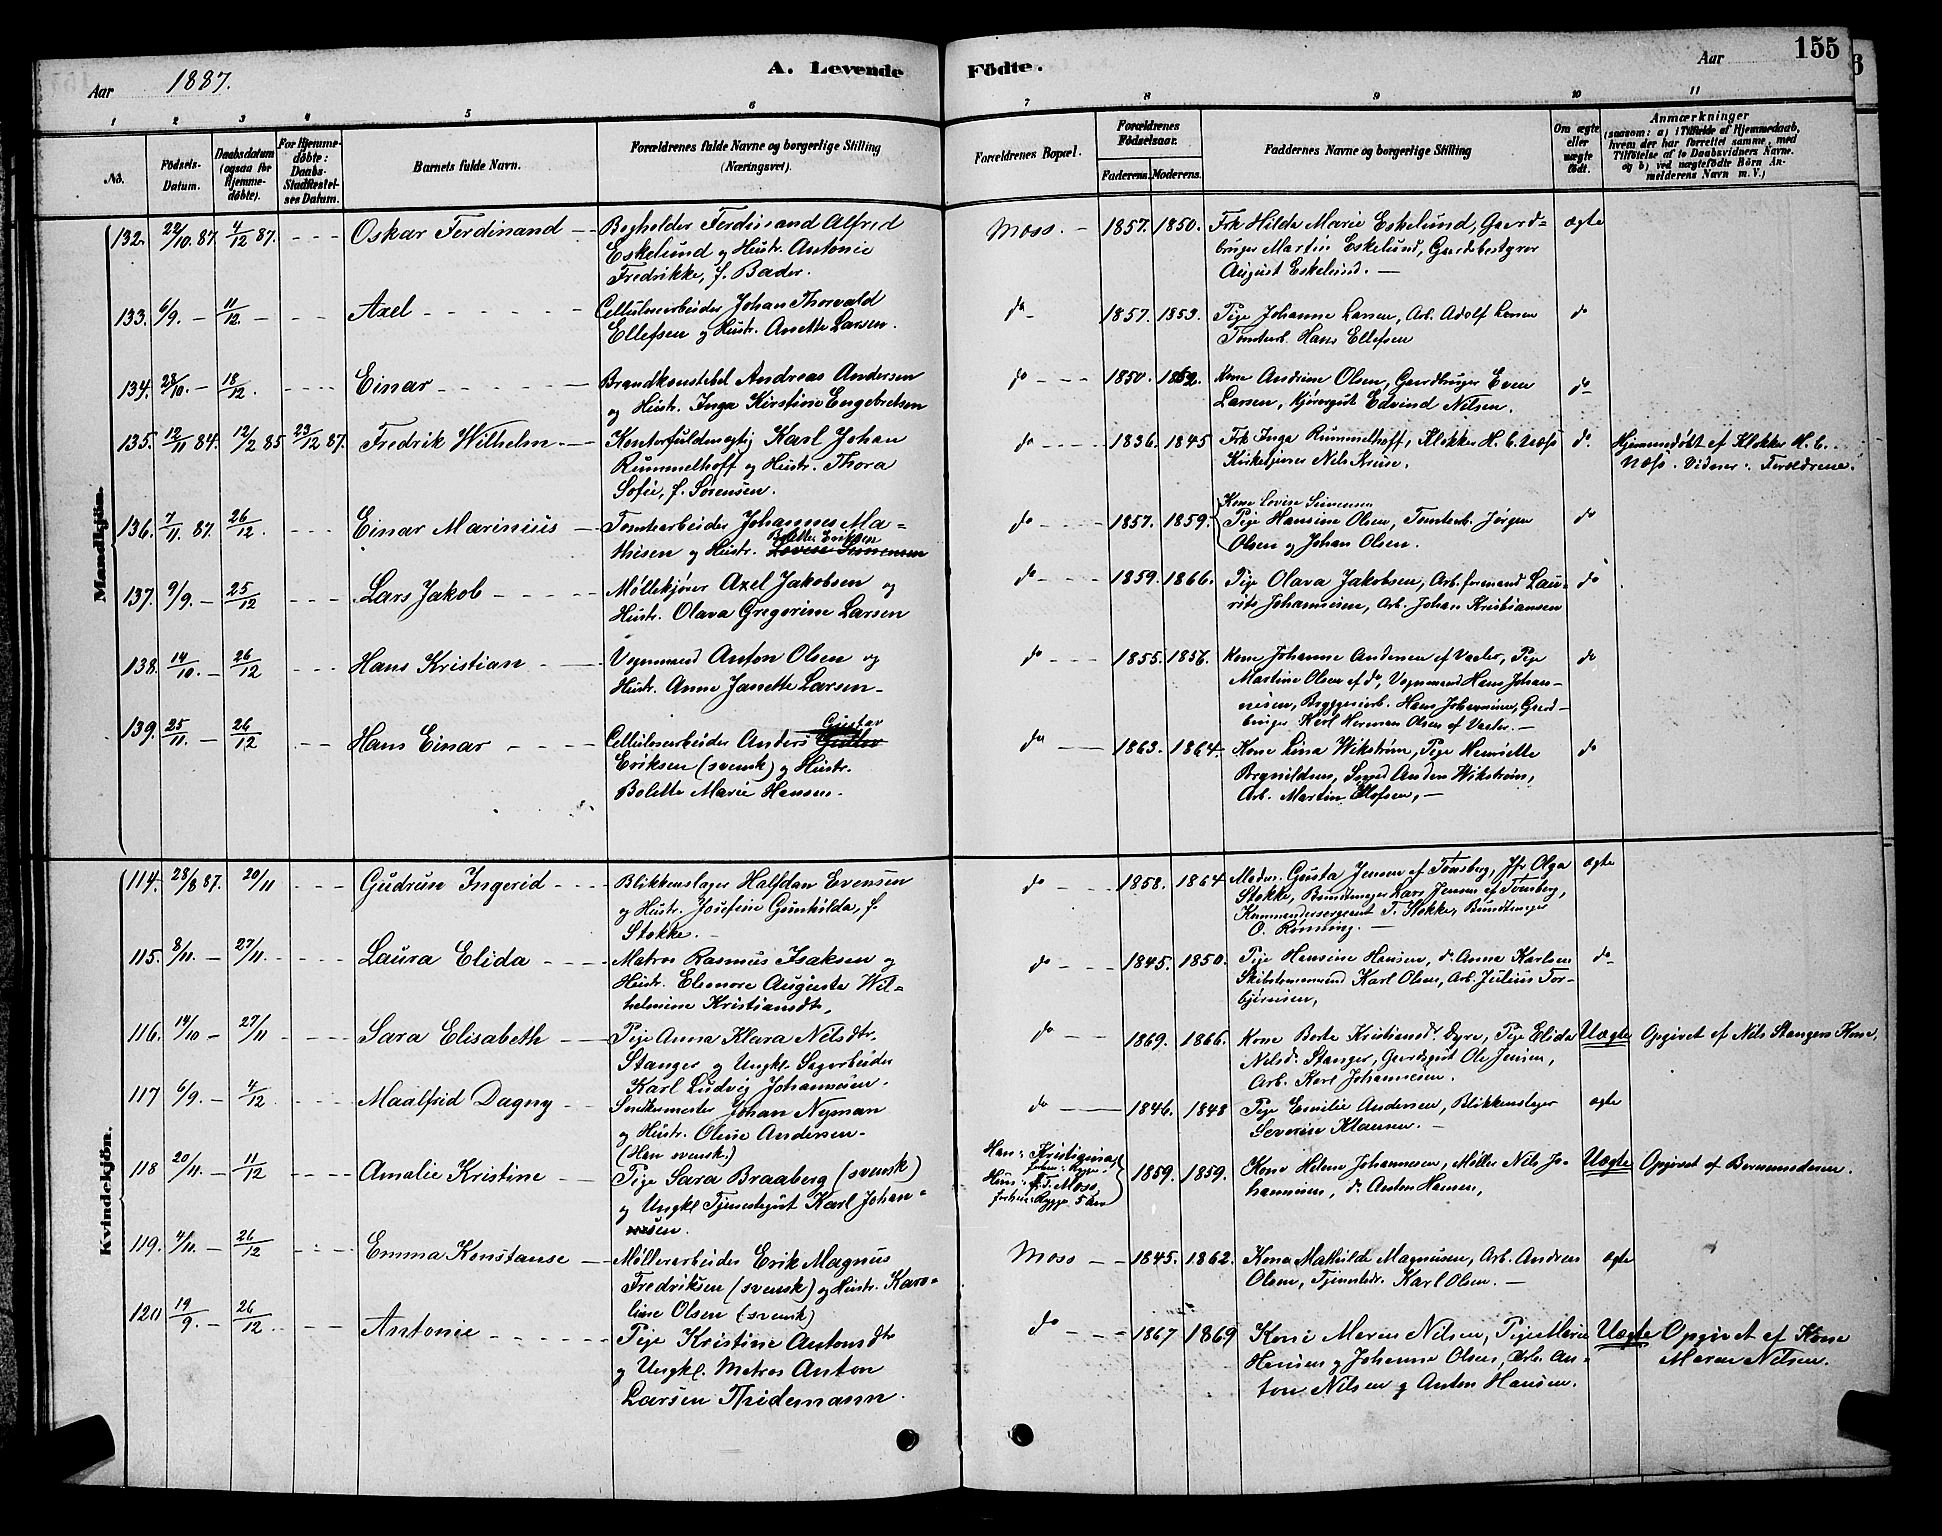 155
Aar 1887.
A. Levende
Födte.
Aar
1 2 3 4 5 6 7 8 9 10 11
No.
Födsels-
Datum.
Daabsdatum
(ogsaa for
Hjemme-
döbte).
For Hjemme-
döbte:
Daabs-
Stadfæstel-
ses Datum.
Barnets fulde Navn.
Forældrenes fulde Navne og borgerlige Stilling
(Næringsvei).
Forældrenes Bopæl.
Forældrenes
Födselsaar.
Faderens. Moderens.
Faddernes Navne og borgerlige Stilling
Om ægte
eller
uægte
födt.
Anmærkninger
(saasom: a) i Tilfælde af Hjemmedaab,
hvem der har forrettet samme, med
Tilföielse af to Daabsvidners Navne.
og b) ved uægtefödte Börn An-
melderens Navn m. V.)
Mandkjön.
132. 22/10. 87. 4/12 87. Oskar Ferdinand
Bogholder Ferdinand Alfred
Eskelund og Hustr. Antonie
Fredrikke, f. Bader.
Moss. 1857. 1850.
Frk Hilda Marie Eskelund, Gaard-
bruger Martin Eskelund, Gaardbestyrer
August Eskelund.
ægte
133. 6/9. 11/12. Axel
Cellulosearbeider Johan Thorvald
Ellefsen og Hustr. Anette Larsen.
do 1857. 1853.
Pige Johanne Larsen, Arb. Adolf Larsen
Tomtearb. Hans Ellefsen
do
134. 28/10. 18/12. Einar
Brandkonstabel Andreas Andersen
og Hustr. Inga Kirstine Engebretsen
do 1850. 1862.
Kone Andrine Olsen, Gaardbruger Even
Larsen, Kjøregut Edvind Nilsen.
do
135. 12/11 84. 12/2 85 23/12 87. Fredrik Wilhelm
Kontorfuldmægtig Karl Johan
Rummelhoff og Hustr. Thora
Sofie, f. Sørensen.
do 1836. 1845
Frk Inga Rummelhoff, Klokker H. C. Næss
Kirketjener Nils Kruse.
do.
Hjemmedøbt af Klokker H. C.
Næss. Vidner: Forældrene.
136. 7/11. 87. 26/12. Einar Marinius
Tomtearbeider Johannes Ma-
thisen og Hustr. Lovise Simensen
Bolette Eriksen
do 1857. 1859.
Kone Lovise Simensen
Pige Hansine Olsen, Tomtearb. Jørgen
Olsen og Johan Olsen.
do
137. 9/9. 25/12 Lars Jakob
Møllekjører Axel Jakobsen og
Hustr. Olava Gregorine Larsen
do 1859. 1866.
Pige Olava Jakobsen, Arb.formand Lau-
rits Johannesen, Arb. Johan Kristiansen
do
138. 14/10. 26/12 Hans Kristian
Vognmand Anton Olsen og
Hustr. Anne Janette Larsen
do 1855. 1857.
Kone Johanne Andersen af Vaaler, Pige
Martine Olsen af do, Vognmand Hans Johan-
nesen, Bryggeriarb. Hans Johannesen, Gaard-
bruger Karl Herman Olsen af Vaaler.
do
139. 25/11. 26/12 Hans Einar
Cellulosearbeider Anders Gustav
Eriksen (svensk) og Hustr.
Bolette Marie Hansen.
do 1863. 1864.
Kone Lina Wikstrøm, Pige Henriette
Brynildsen, Smed Anders Wikstrøm,
Arb. Martin Olofsen,
do
Kvindekjön.
114. 28/8 87. 20/11 Gudrun Ingerid
Blikkenslager Halfdan Evensen
og Hustr. Josefine Gunhilda, f.
Stokke.
do 1858. 1864
Madm. Gusta Jensen af Tønsberg, Jfr Olga
Stokke, Bundtmager Lars Jensen af Tønsberg,
Kommandersergeant T. Stokke, Bundtmager
O. Rønning.
ægte
115. 8/11. 27/11. Laura Elida
Matros Rasmus Isaksen og
Hustr. Elenore Auguste Wil-
helmine Kristiansdtr,
do 1845. 1850.
Pige Hansine Hansen, do Anna Karlsen
Skibstømmermand Karl Olsen, Arb. Julius Tor-
bjørnsen,
do
116. 14/10 27/11 Sara Elisabeth
Pige Anna Klara Nilsdtr.
Stanger og Ungk. Sagarbeider
Karl Ludvig Johannesen.
do 1869. 1866.
Kone Berte Kristiansd. Dyre, Pige Elida
Nilsd. Stanger, Gaardsgut Ole Jensen,
Arb. Karl Johannesen.
Uægte
Opgivet af Nils Stangers Kone.
117 6/9. 4/12 Maalfrid Dagny
Snedkermester Johan Nyman
og Hustr. Oline Andersen.
(Han svensk.)
do 1846. 1848
Pige Emilie Andersen, Blikkenslager
Severin Klausen.
ægte
118 20/11. 11/12 Amalie Kristine
Pige Sara Braaberg (svensk)
og Ungkl Tjenestegut Karl Johan-
nesen.
Han: Kristiania
Hun: Moss,
1859. 1859.
Kone Helene Johannesen, Møller Nils Jo-
hannesen, do Anton Hansen,
Uægte
Opgivet af Barnemoderen.
119. 4/11. 26/12 Emma Konstanse
Møllerarbeider Erik Magnus
Fredriksen (svensk) og Hustr. Karo-
line Olsen (svensk)
Moss 1845. 1862.
Kone Mathilde Magnusen, Arb. Andreas
Olsen, Tjenestedr. Karl Olsen.
ægte
120 19/9. 26/12. Antonie
Pige Kristine Antonsdtr
og Ungkl. Matros Anton
Larsen Thidemann.
do 1867 1869
Kone Maren Nilsen, Pige Marie
Hansen og Johanne Olsen, Arb. An-
ton Nilsen og Anton Hansen.
Uægte
Opgivet af Kone
Maren Nilsen.